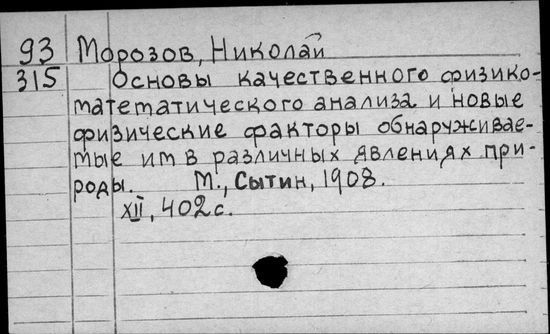 93 Морозов, Николай
315 Основы качественного физико-
математического анализа и новые
физические факторы обнаруживае-
мые им в различных явлениях при-
роды. М., Сытин, 1908.
XII, 402 с.